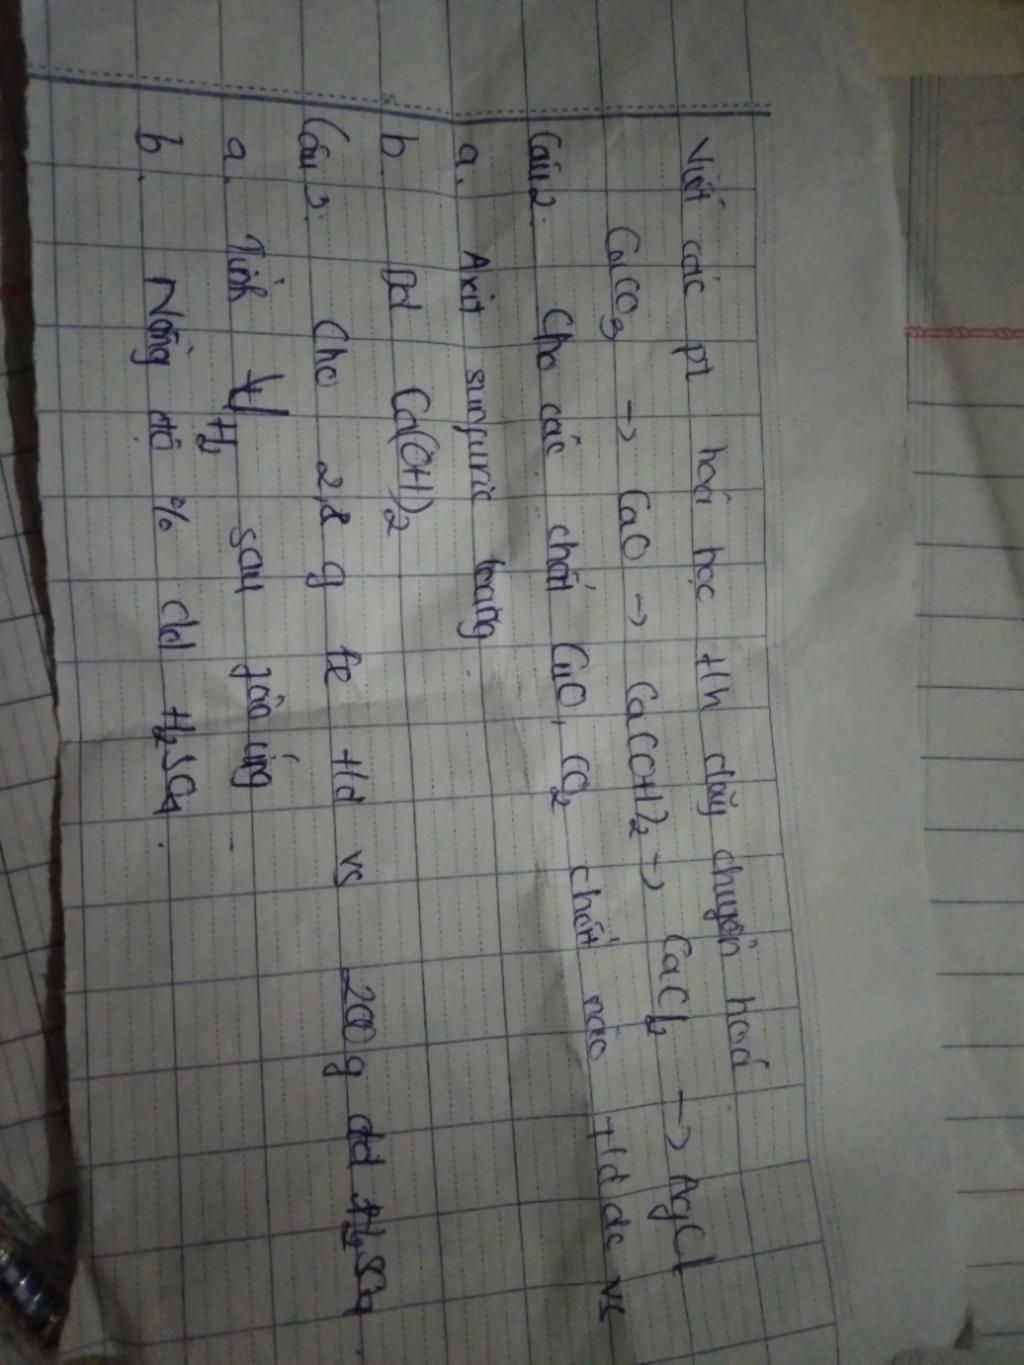 Viết các pt hoá học t/h dãy chuyển hoá
CaCO3 → CaO → Ca(OH)2 → CaCl2 → AgCl
Câu 2: Cho các chất CuO, CO2 chất nào t/d dc vs
a. Axit sunfuric loãng
b. Dd Ca(OH)2
Câu 3: Cho 2,8 g fe t/d vs 200g dd H2SO4.
a. Tính V H2 sau pản ứng
b. Nồng độ % dd H2SO4.